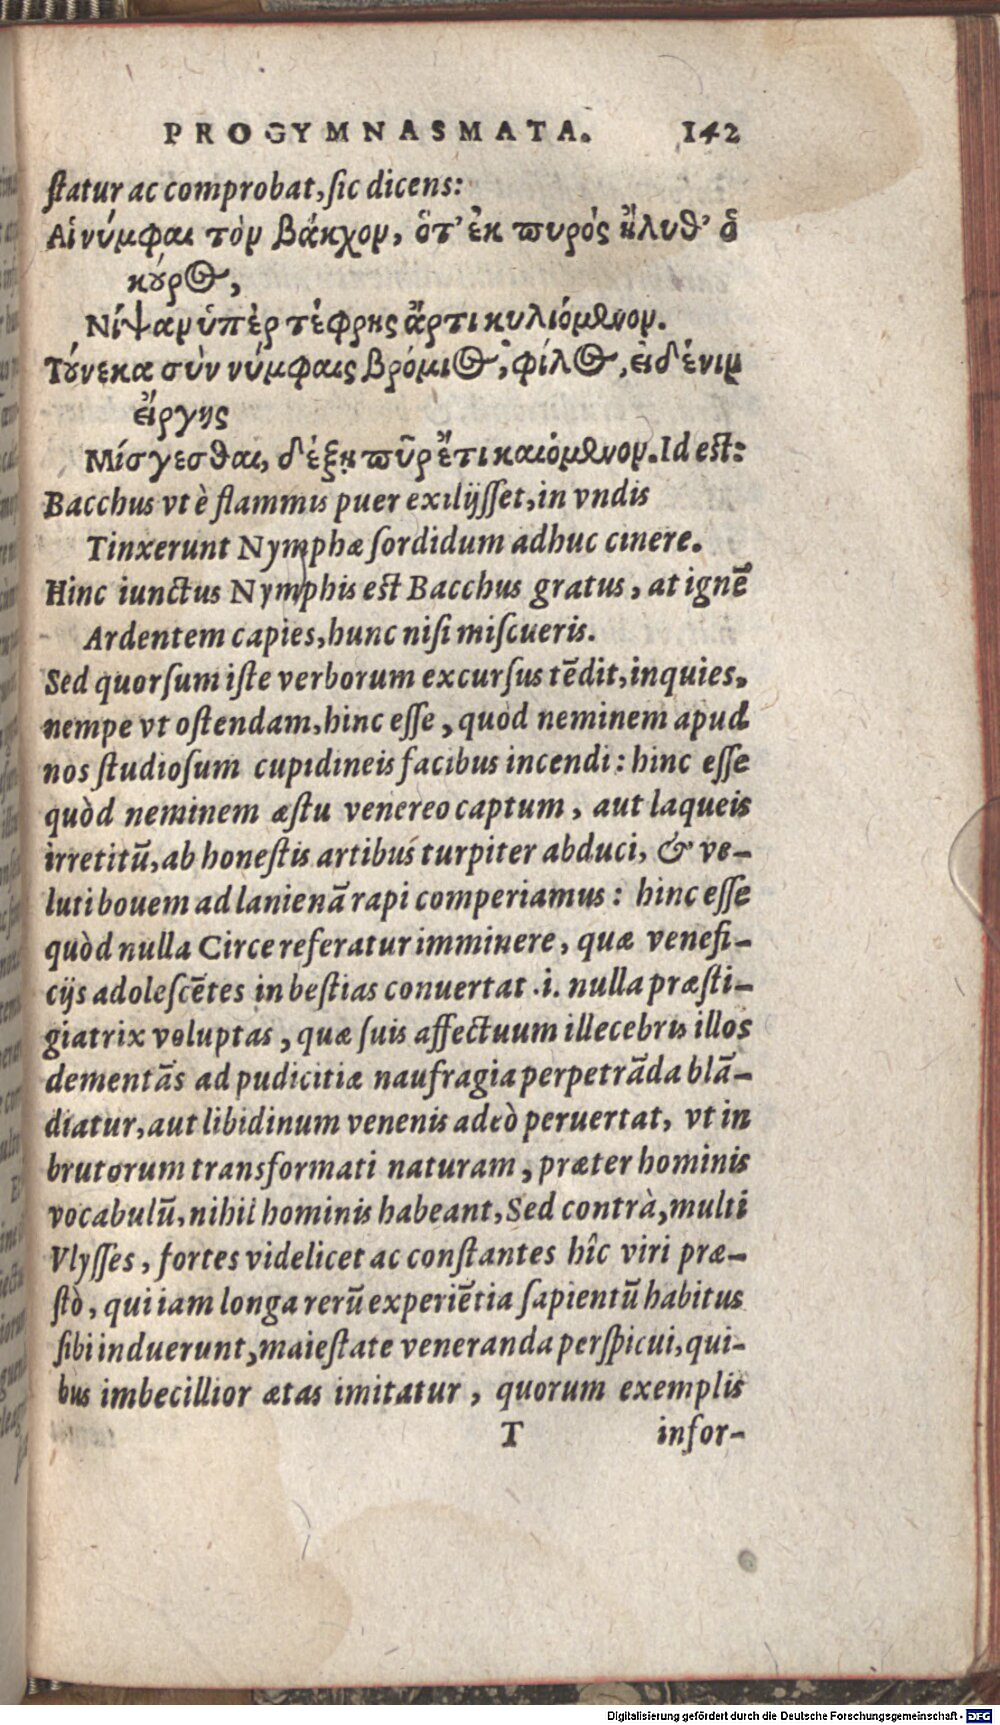 PROGYMNASMATA. 142
ſtatur ac comprobat, ſic dicens:
Αἱ νύμφαι τὸν βάκχον, ὅτ' ἐκ πυρὸς ἤλυθ' ὁ
κοῦρος,
Νίψαν ὑπὲρ τέφρης ἄρτι κυλιόμενον.
Τούνεκα σὺν νύμφαις βρόμιος φίλος, εἰ δ' ένιν
εἴργης
Μίσγεσθαι, δέξῃ πῦρ ἔτι καιόμενον. Id eſt:
Bacchus vt è flammis puer exilijſſet, in vndis
Tinxerunt Nymphæ ſordidum adhuc cinere.
Hinc iunctus Nymphis eſt Bacchus gratus, at ignē
Ardentem capies, hunc niſi miſcueris.
Sed quorſum iſte verborum excurſus tēdit, inquies,
nempe vt oſtendam, hinc eſſe, quòd neminem apud
nos ſtudioſum cupidineis facibus incendi: hinc eſſe
quòd neminem æſtu venereo captum, aut laqueis
irretitū, ab honeſtis artibus turpiter abduci, & ve-
luti bouem ad lanienā rapi comperiamus: hinc eſſe
quòd nulla Circe referatur imminere, quæ venefi-
cijs adoleſcētes in beſtias conuertat .i. nulla præſti-
giatrix voluptas, quæ ſuis affectuum illecebris illos
dementās ad pudicitiæ naufragia perpetrāda blā-
diatur, aut libidinum venenis adeò peruertat, vt in
brutorum transformati naturam, præter hominis
vocabulū, nihil hominis habeant, Sed contrà, multi
Vlyſſes, fortes videlicet ac conſtantes hîc viri præ-
ſtò, qui iam longa rerū experiētia ſapientū habitus
ſibi induerunt, maieſtate veneranda perſpicui, qui-
bus imbecillior ætas imitatur, quorum exemplis
T infor-
Digitalisierung gefördert durch die Deutsche Forschungsgemeinschaft - DFG